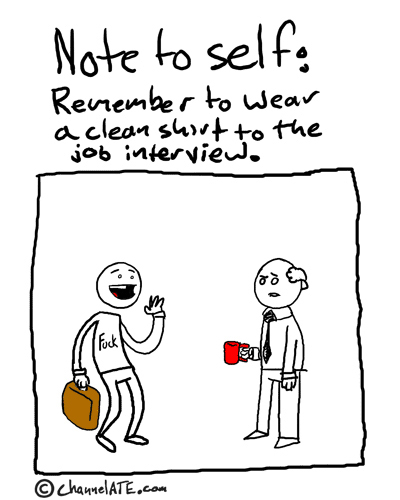 Note to self:
Remember to wear
a clean shirt to the
job interview.
Fuck
© ChannelATE.com